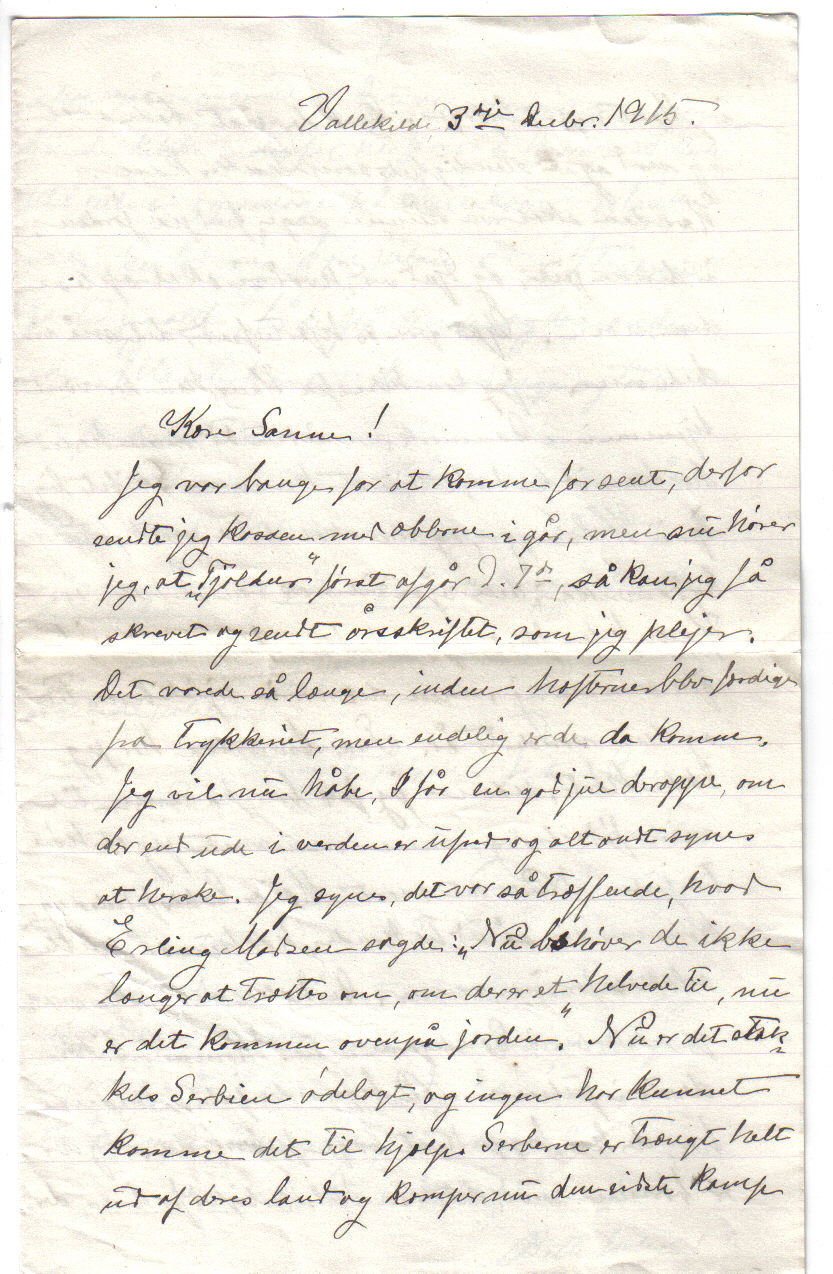 Vallekilde 3dje Decbr. 1915.
Kære Sanne!
Jeg var bange for at komme for sent, derfor
sendte jeg kassen med æblerne i går, men nu hører
jeg, at „Tjaldur” først afgår d. 7de, så kan jeg få
skrevet og sendt årsskriftet, som jeg plejer.
Det varede så længe, inden hæfterne blev færdige
fra trykkeriet, men endelig er de da komne.
Jeg vil nu håbe, I får en god jul deroppe, om
der end ude i verden er ufred og alt ondt synes
at herske. Jeg synes, det var så træffende, hvad
Erling Madsen sagde: „Nu behøver de ikke
længer at trættes om, om der er et helvede til, nu
er det kommen ovenpå jorden”. Nu er det stak-
kels Serbien ødelagt, og ingen har kunnet
komme det til hjælp. Serberne er trængt helt
ud af deres land og kæmper nu den sidste kamp